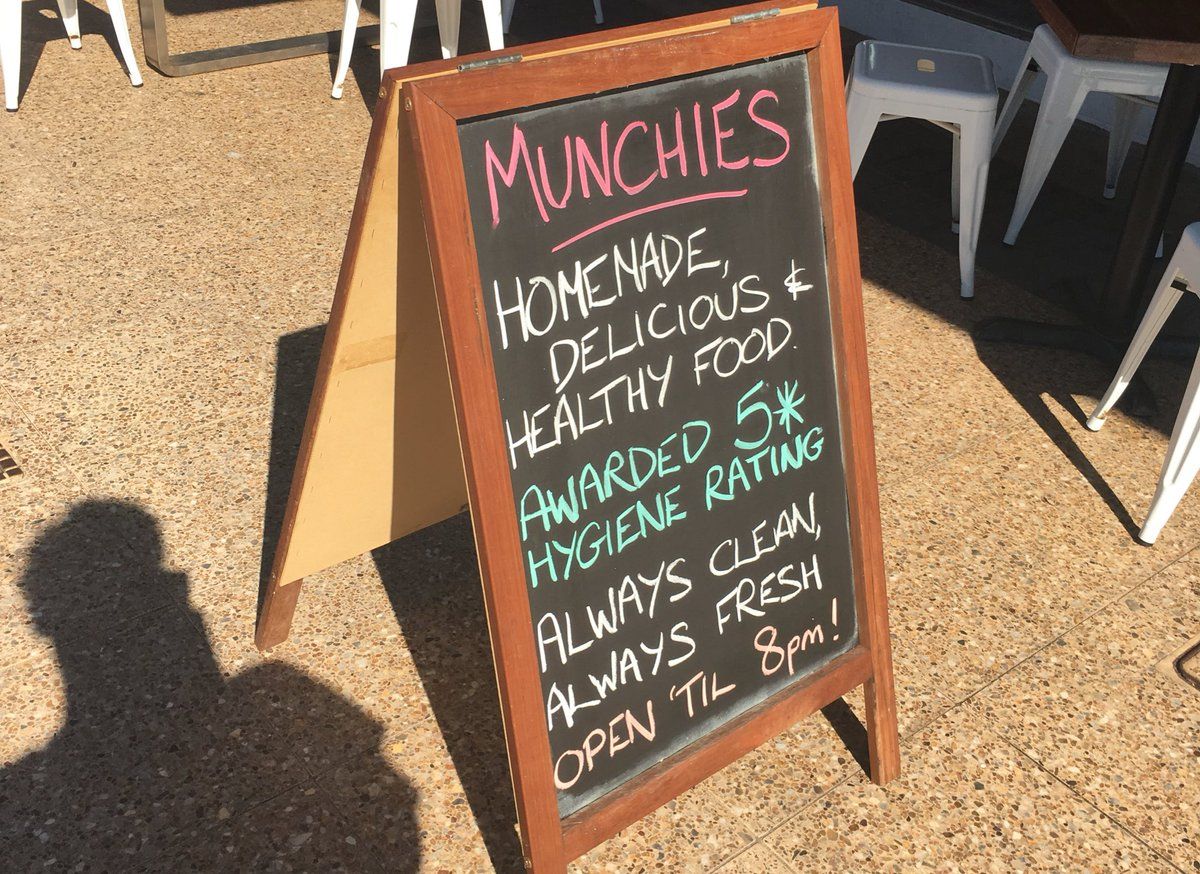 MUNCHIES
HOMENADE,
DELICIOUS &
HEALTHY FOOD.
AWARDED 5*
HYGIENE RATING
ALWAYS CLEAN,
ALWAYS FRESH
OPEN 'TIL 8pm!